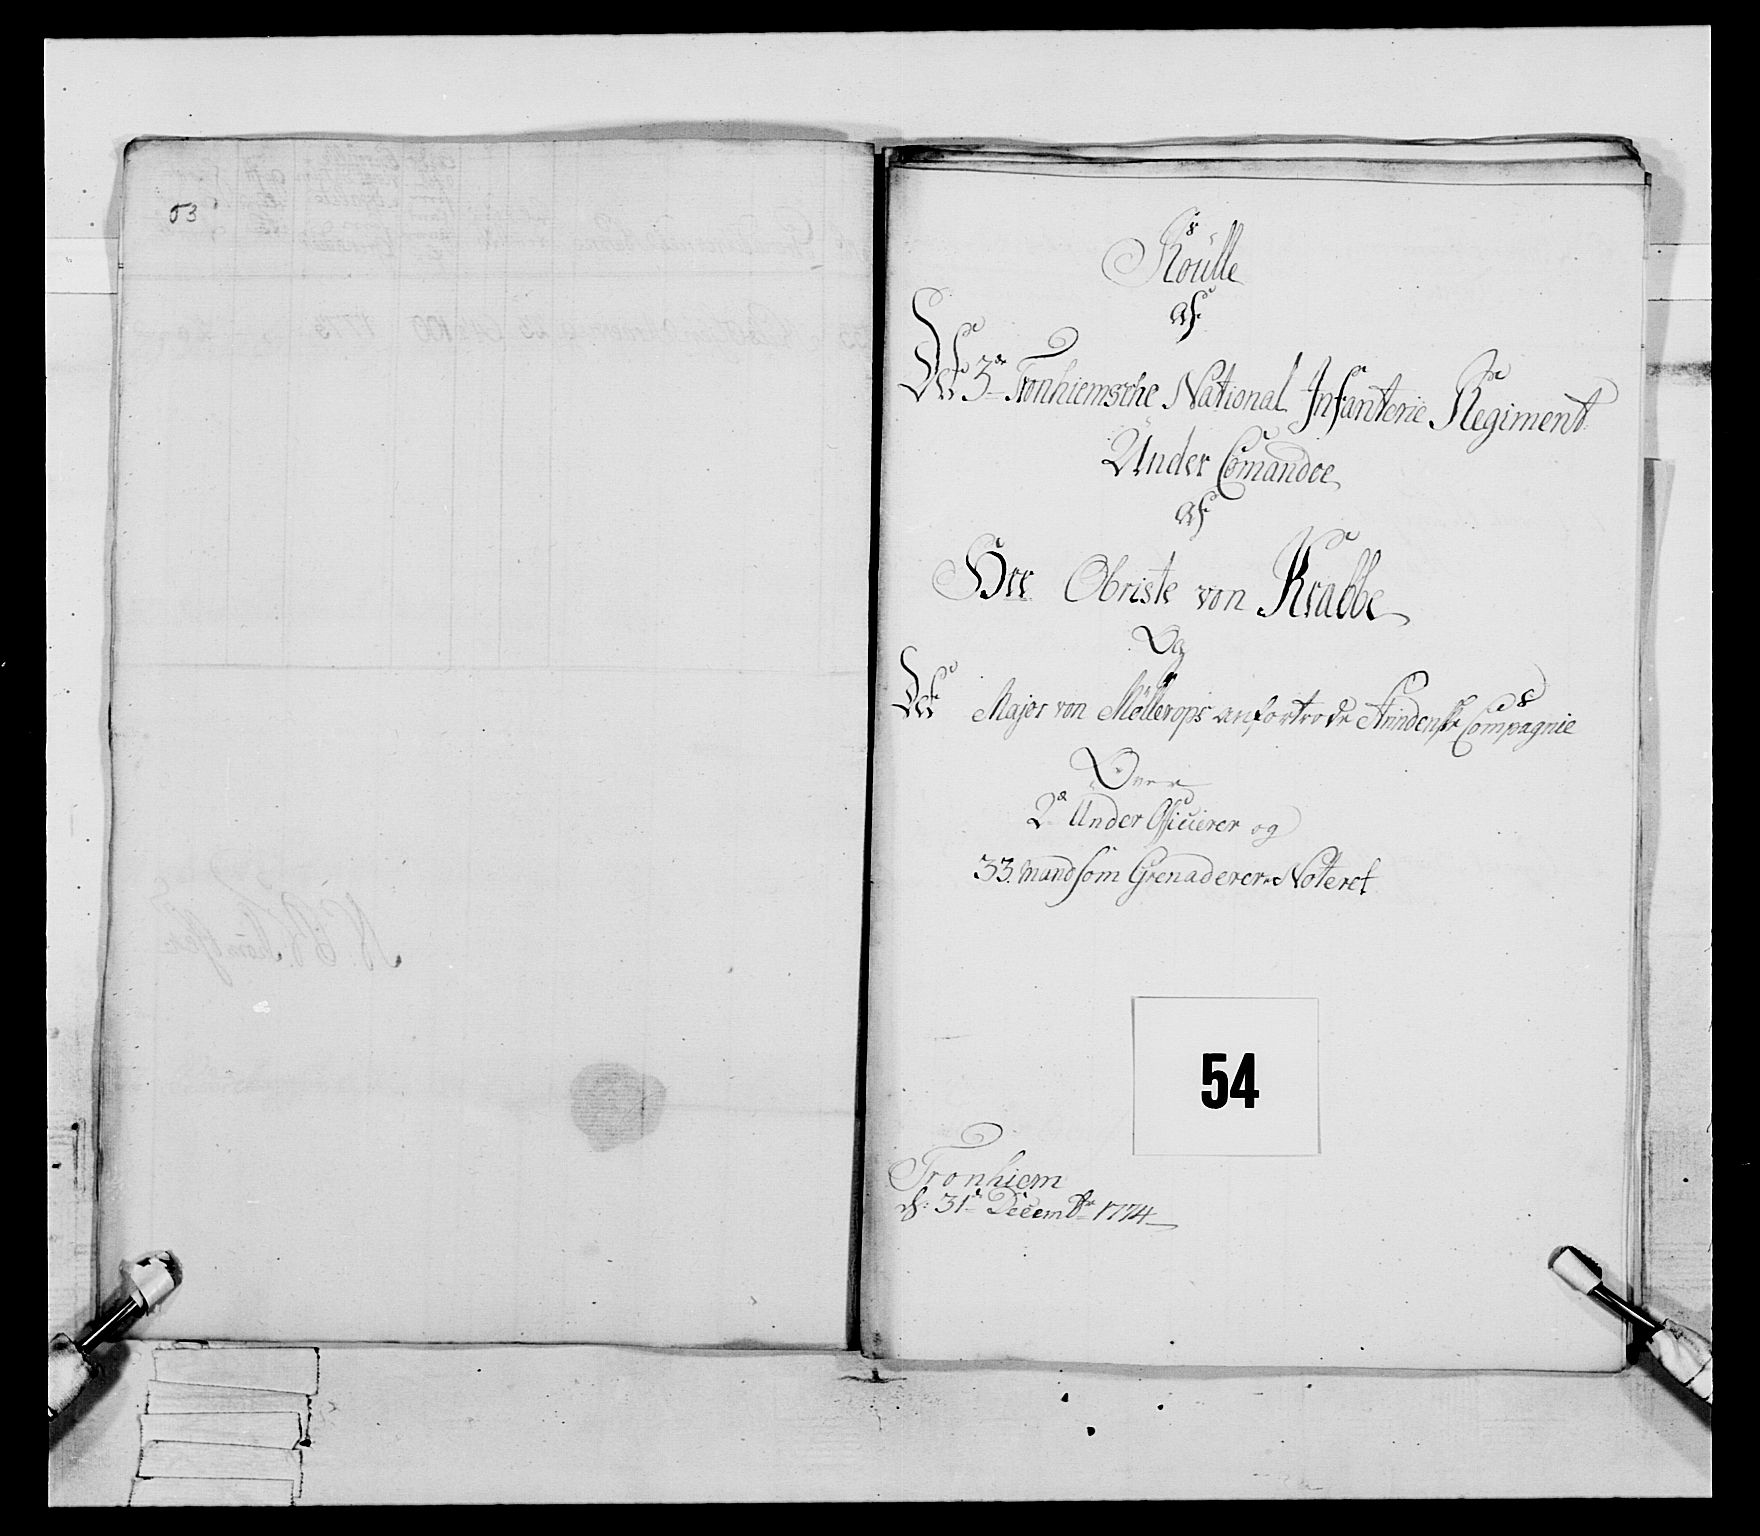 53
Roülle
af
Det 3de Tronhiemsche National Infanterie Regiment
Ünder Comandoe
af
Hrr Obriste von Krabbe
Og
Det Major von Möllerops anfortrode Strindenske Compagnie
Over
2de Under Officierer og
33. mand som Grenaderer Noteret
54
Tronhiem
d: 31te Decembr 1774